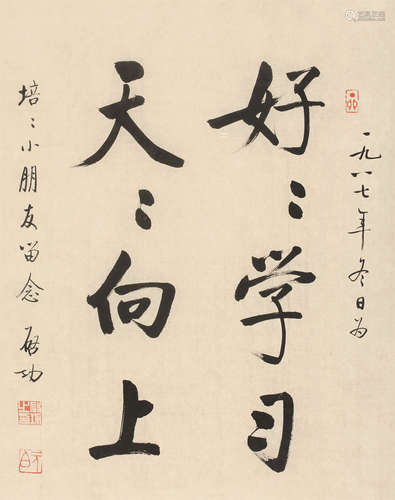 一九八七年冬日为
好〻学习
天〻向上
培〻小朋友留念 启功